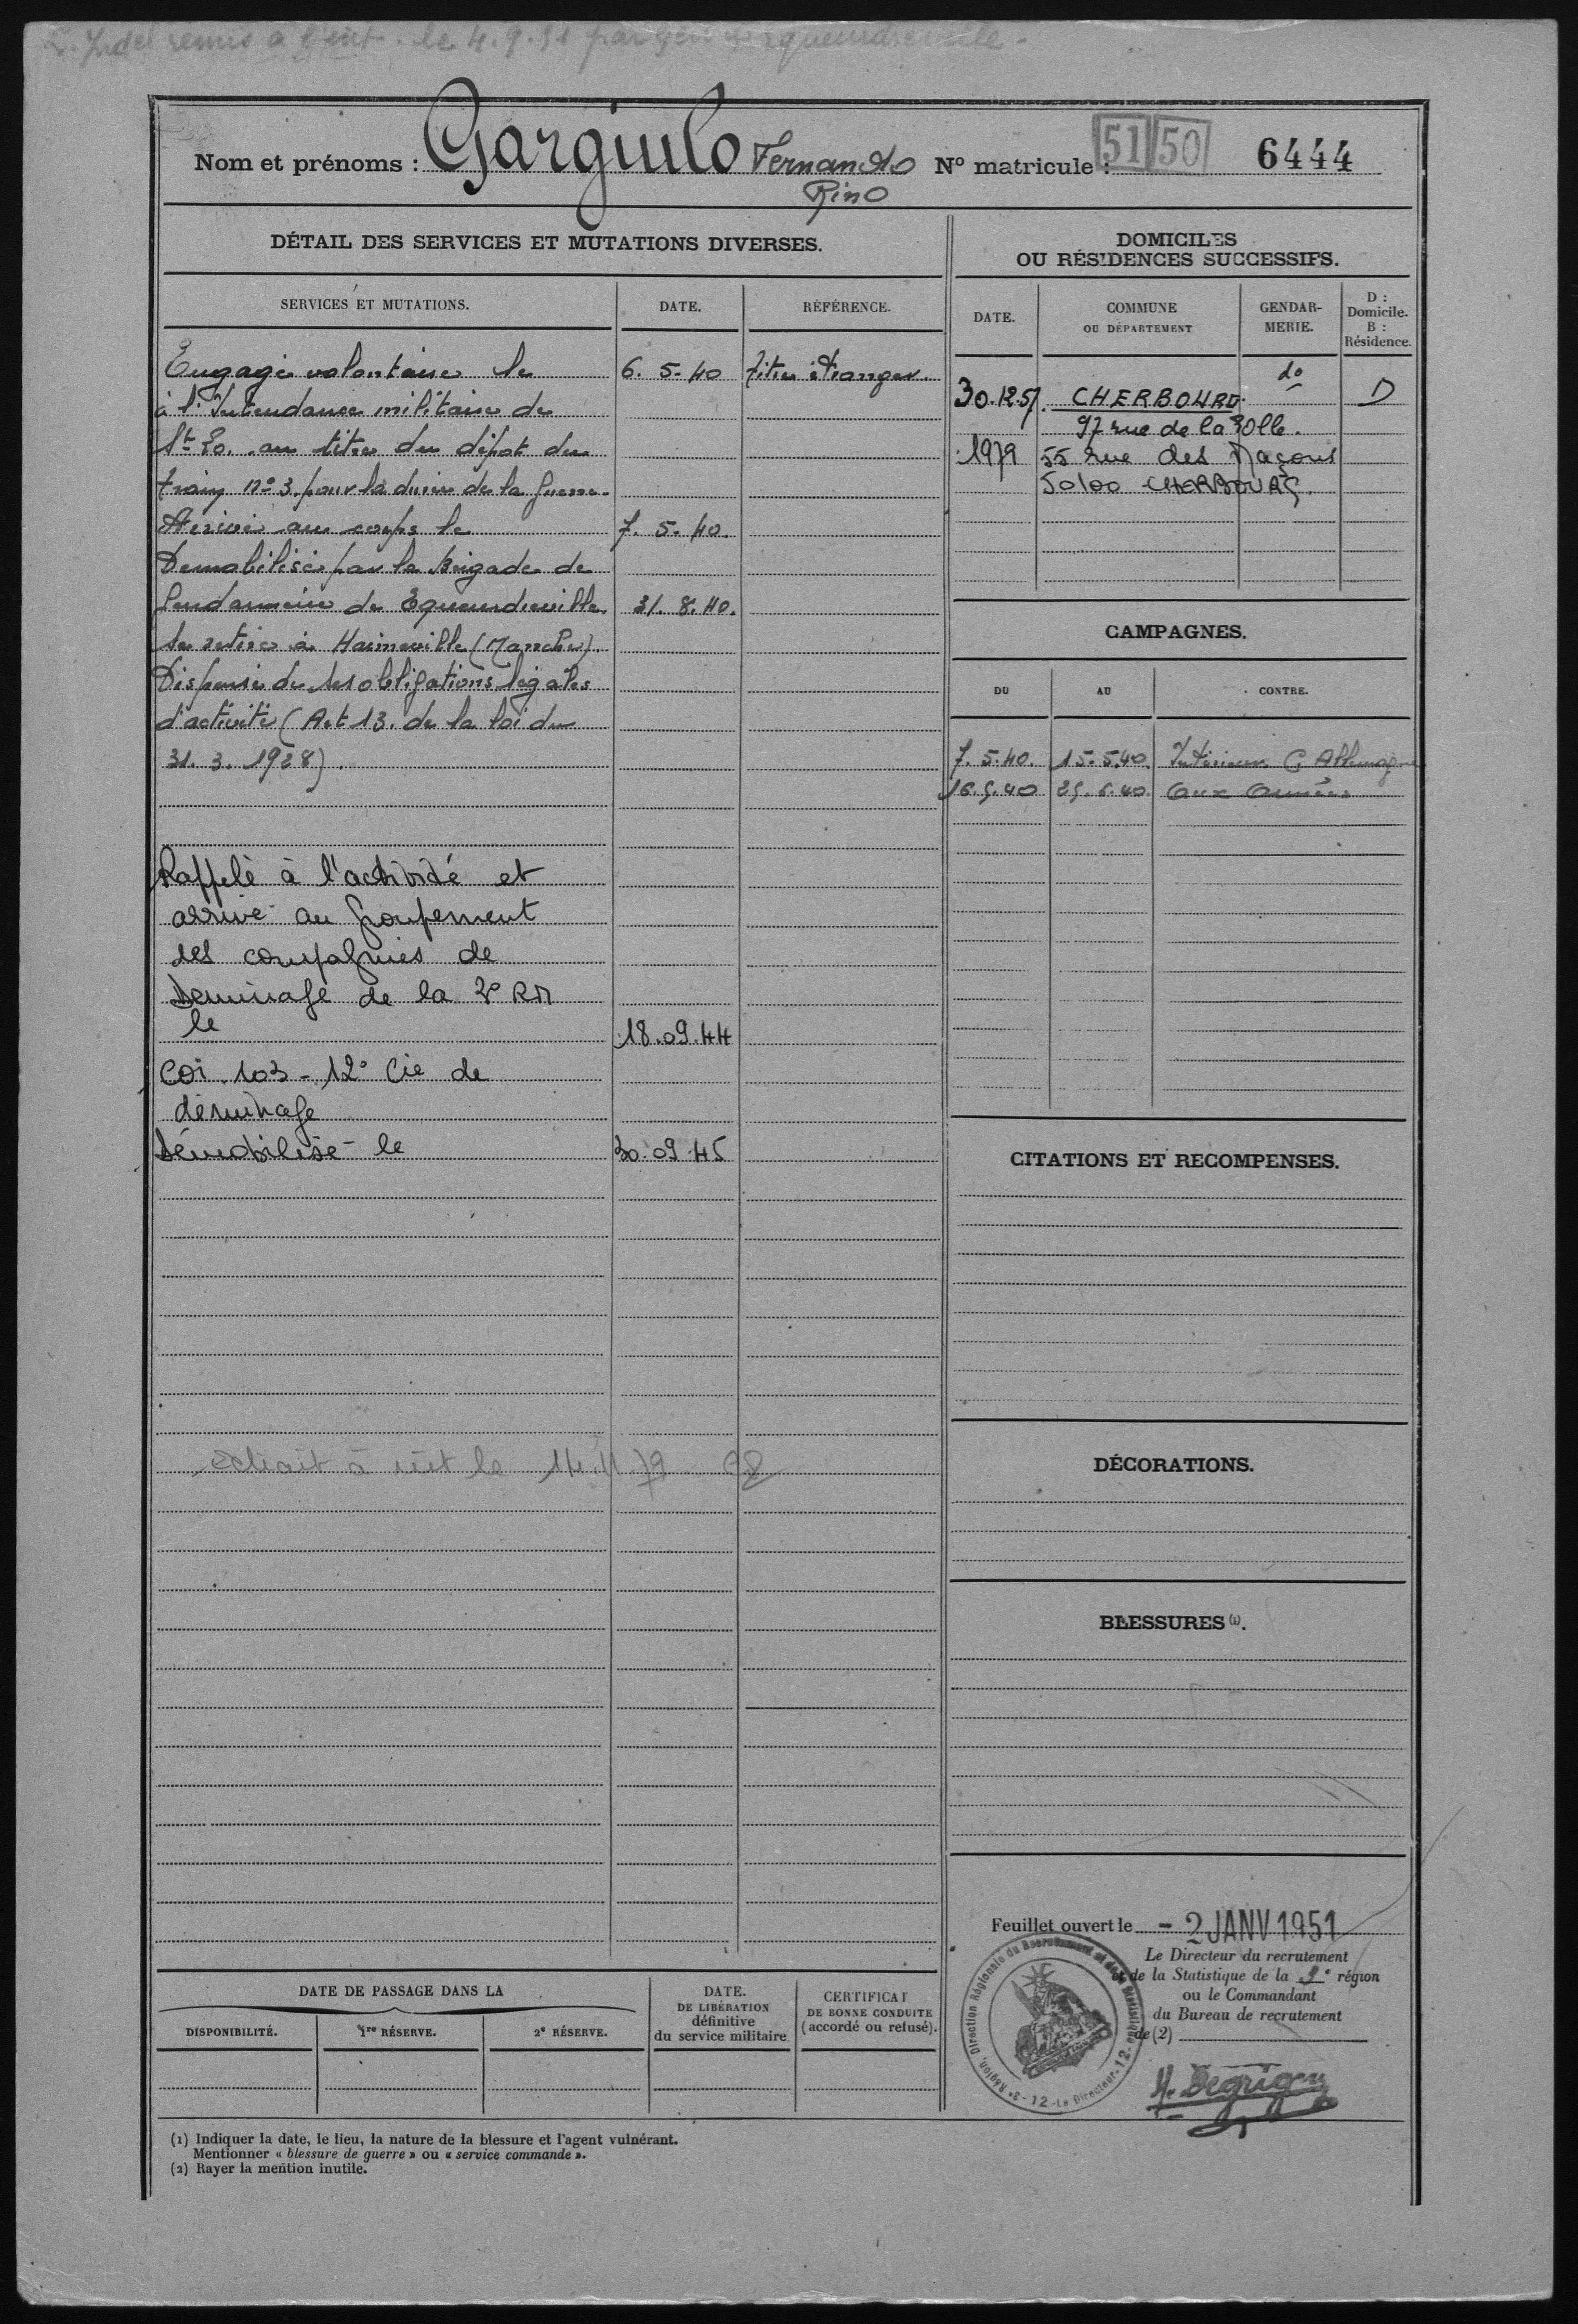 remis à le 4.9.51 par
Nom et prénoms : Gargiulo Fernando N° matricule : 51 50 6444
Rino
DÉTAIL DES SERVICES ET MUTATIONS DIVERSES.
SERVICES ET MUTATIONS. DATE. RÉFÉRENCE.
Engagé volontaire le 6. 5. 40 titre étranger.
à l'Intendance militaire de
St Lo. au titre du dépot du
train n° 3. pour la durée de la guerre.
Arrivé au corps le 7. 5. 40.
Demobilisé par la brigade de
Gendarmerie de Equeurdreville 31. 8. 40.
se retire à Haineville (Manche).
Dispensé de ses obligations légales
d'activité (Art 13. de la loi du
31. 3. 1928).
Rappelé à l'activité et
arrivé au groupement
des compagnies de
Deminage de la 3e RM
le 18.09.44
COI 103 - 12° Cie de
déminage
Démobilisé le 30.09.45
extrait à le 14.11.79
DATE DE PASSAGE DANS LA
DISPONIBILITÉ. 1re RÉSERVE. 2e RÉSERVE.
DATE.
DE LIBÉRATION
définitive
du service militaire
CERTIFICAT
DE BONNE CONDUITE
(accordé ou refusé).
DOMICILES
OU RÉSIDENCES SUCCESSIFS.
DATE. COMMUNE
OU DÉPARTEMENT
GENDAR-
MERIE.
D :
Domicile.
B :
Résidence.
30.12.57. CHERBOURG. do D
97 rue de la Polle.
1979 55 rue des Maçons
50100 CHERBOURG.
CAMPAGNES.
DU AU CONTRE.
7. 5. 40. 15. 5. 40. Intérieur C Allemagne
16. 5. 40 25. 6. 40. aux Armées
CITATIONS ET RECOMPENSES.
DÉCORATIONS.
BLESSURES (1).
Feuillet ouvert le - 2 JANV 1951
Le Directeur du recrutement
et de la Statistique de la 3e région
ou le Commandant
du Bureau de recrutement
de (2)
3e Région, Direction Régionale du Recrutement et de la Statistique - 12 - Le Directeur - 12 -
(1) Indiquer la date, le lieu, la nature de la blessure et l'agent vulnérant.
Mentionner « blessure de guerre » ou « service commande ».
(2) Rayer la mention inutile.